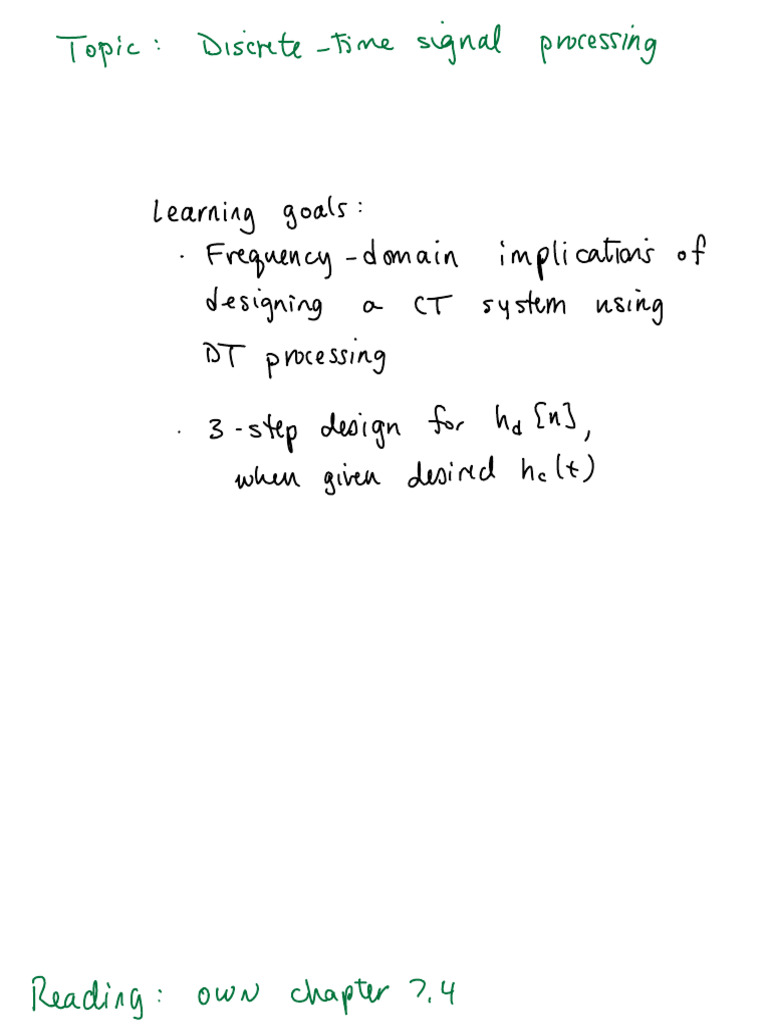 Topic: Discrete-time signal processing
Learning goals:
· Frequency-domain implications of
designing a CT system using
DT processing
· 3-step design for h_d[n],
when given desired h_c(t)
Reading: OWN chapter 7.4